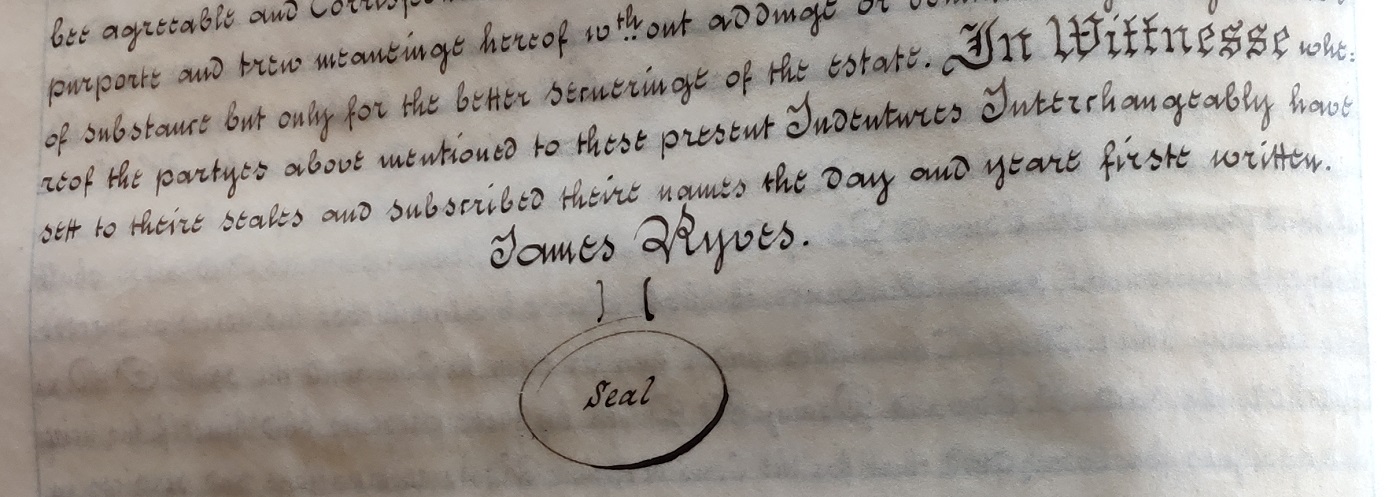 bee agreeable and
purporte and trew meaneinge hereof wth out addinge or
of substance but only for the better secureinge of the estate. In Wittnesse whe:
reof the partyes above mentioned to these present Indentures Interchangeably have
sett to theire seales and subscribed theire names the day and yeare firste written.
James Ryves.
Seal